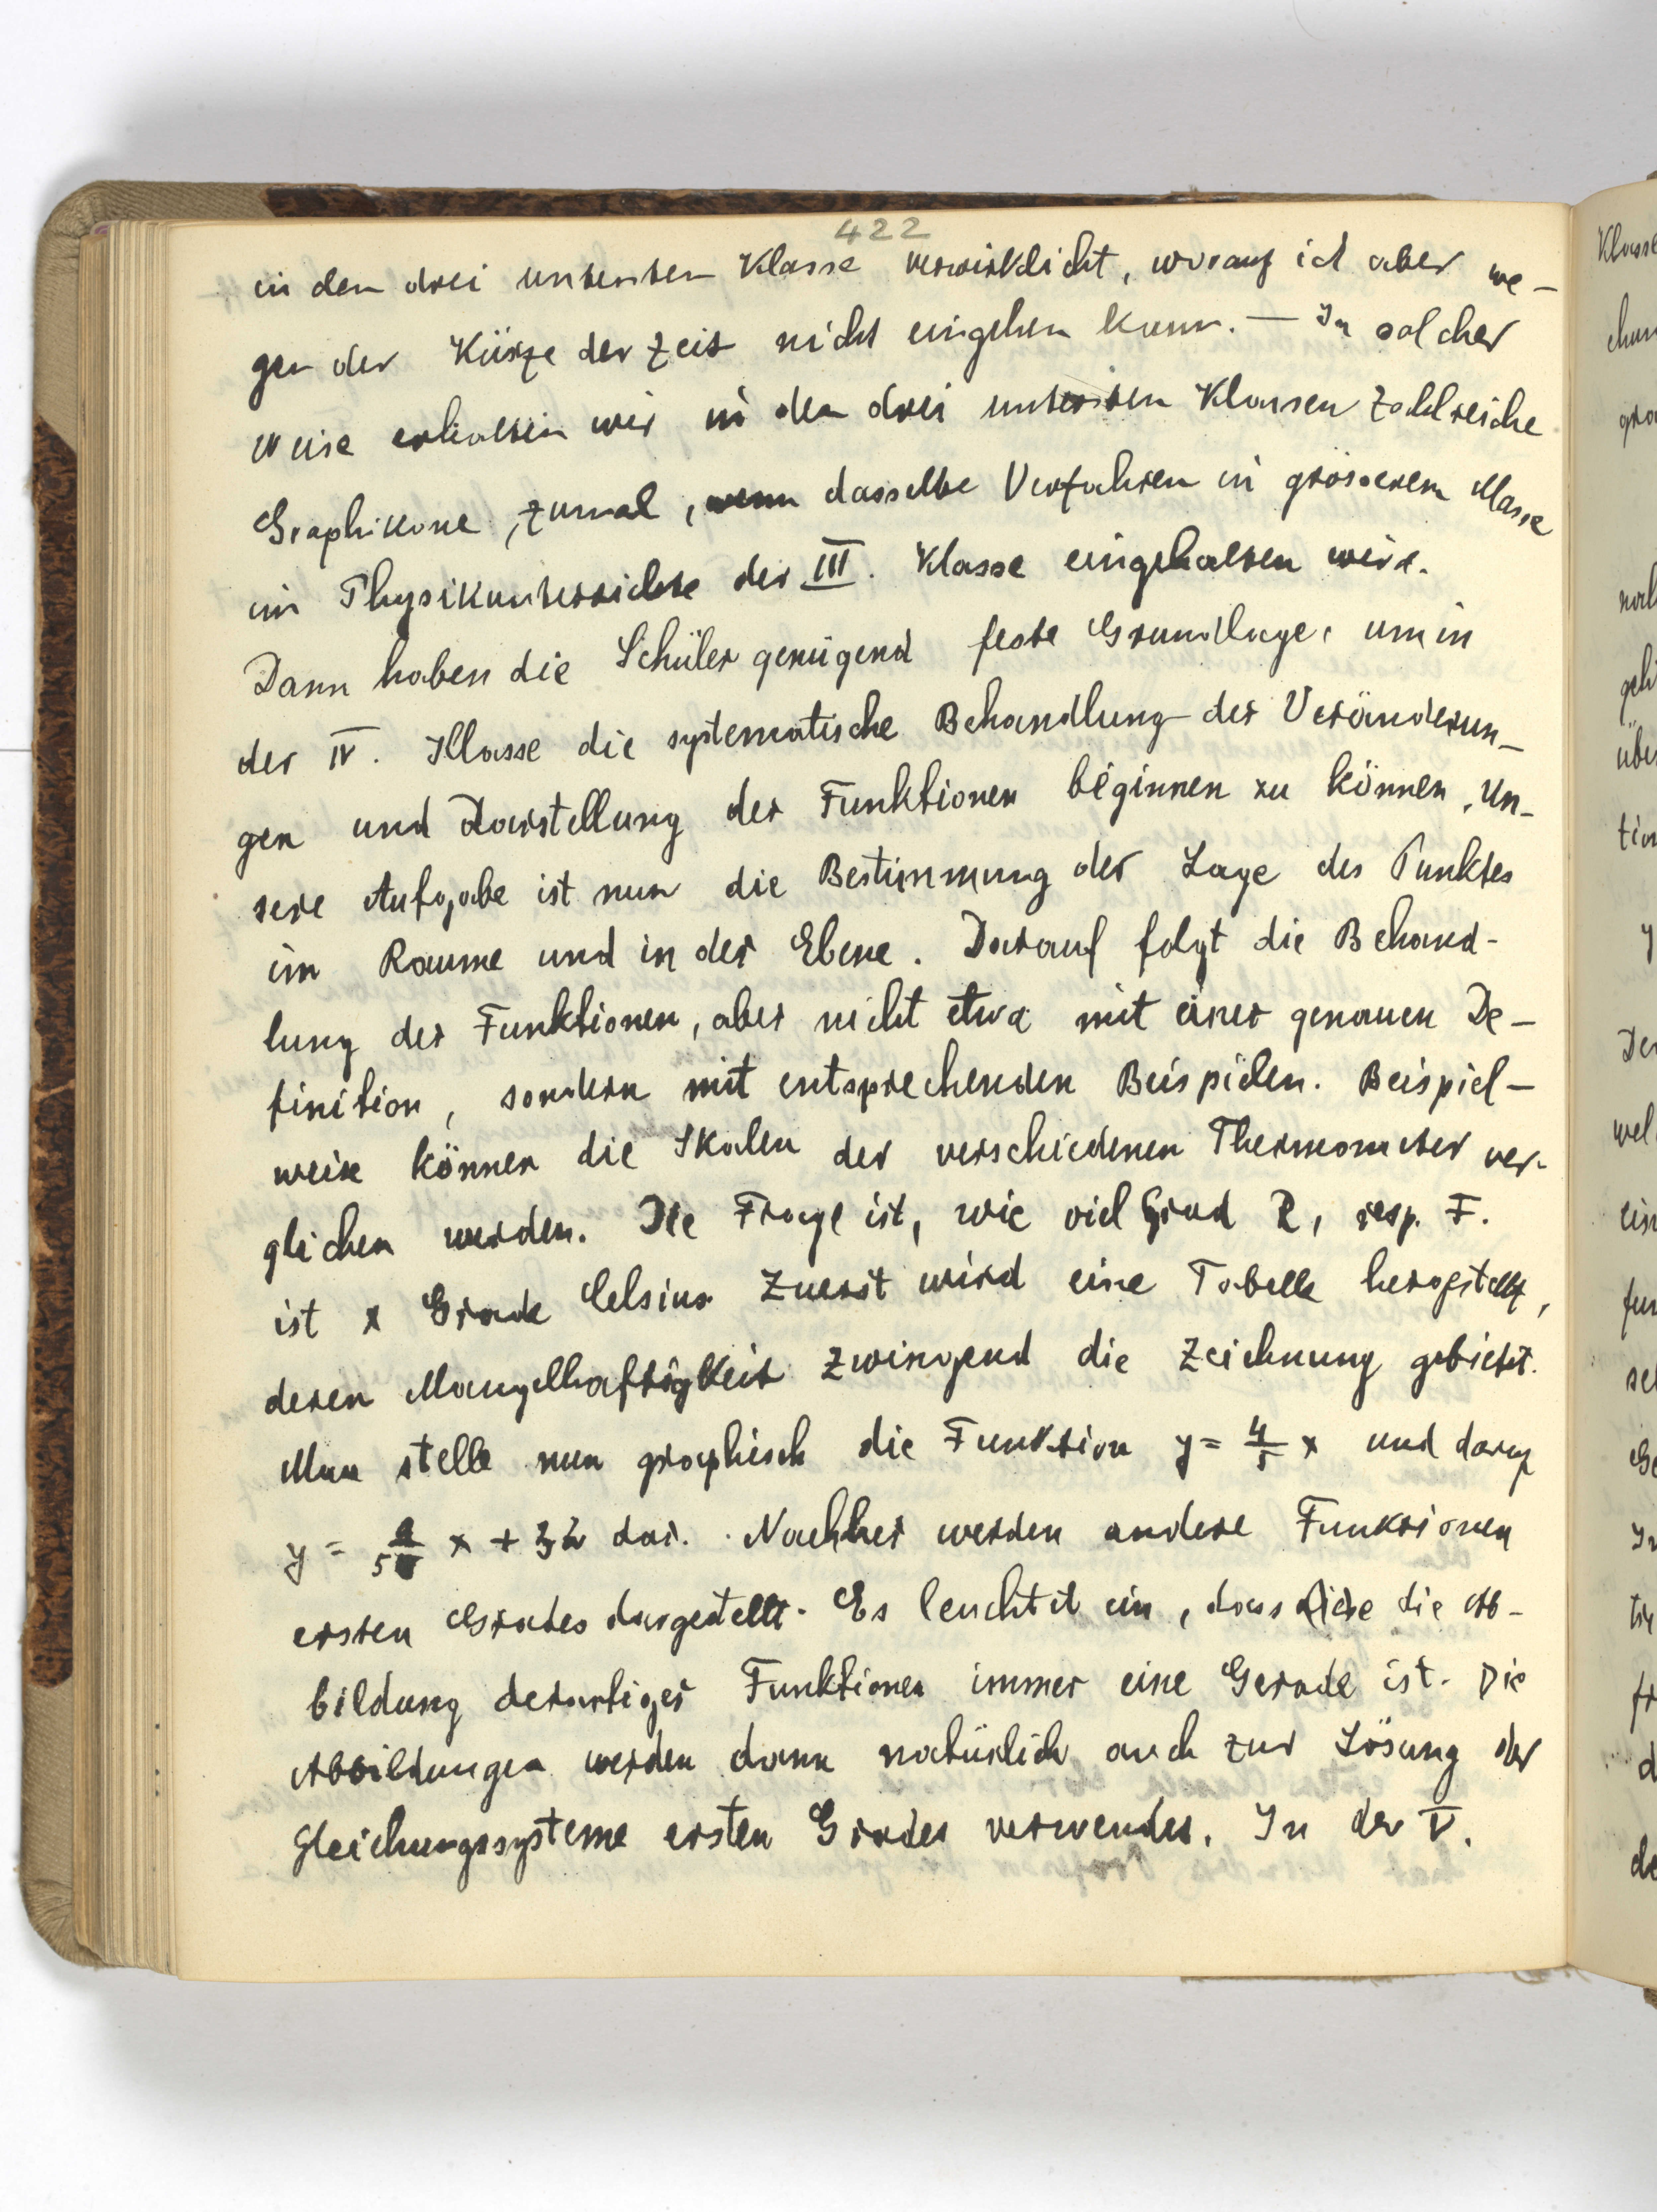 422
in den drei untersten Klasse verwirklicht, worauf ich aber we-
gen der Kürze der Zeit nicht eingehen kann. — In solcher
Weise erhalten wir in den drei untersten Klassen zahlreiche
Graphikone, zumal, wenn dasselbe Verfahren in grösserem Masse
im Physikunterrichte der III. Klasse eingehalten wird.
Dann haben die Schüler genügend feste Grundlage, um in
der IV. Klasse die systematische Behandlung der Veränderun-
gen und Darstellung der Funktionen beginnen zu können. Un-
sere Aufgabe ist nun die Bestimmung der Lage des Punktes
im Raume und in der Ebene. Darauf folgt die Behand-
lung der Funktionen, aber nicht etwa mit einer genauen De-
finition, sondern mit entsprechenden Beispielen. Beispiel-
weise können die Skalen der verschiedenen Thermometer ver-
glichen werden. Die Frage ist, wie viel Grad R, resp. F.
ist x Grade Celsius. Zuerst wird eine Tabelle hergestellt,
deren Mangelhaftigkeit zwingend die Zeichnung gebietet.
Man stelle nun graphisch die Funktion y = 4/5 x und darauf
y = 9/5 x + 32 dar. Nachher werden andere Funktionen
ersten Grades dargestellt. Es leuchtet ein, dass die Ab-
bildung derartiger Funktionen immer eine Gerade ist. Die
Abbildungen werden dann natürlich auch zur Lösung der
Gleichungssysteme ersten Grades verwendet. In der V.
Klasse